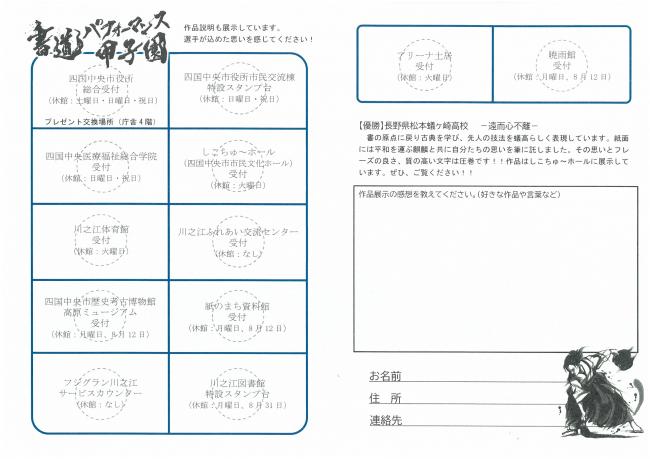 書道パフォーマンス
甲子園
作品説明も展示しています。
選手が込めた思いを感じてください！
四国中央市役所
総合受付
（休館：土曜日・日曜日・祝日）
プレゼント交換場所（庁舎４階）
四国中央市役所市民交流棟
特設スタンプ台
（休館：日曜日・祝日）
四国中央医療福祉総合学院
受付
（休館：日曜日・祝日）
しこちゅ～ホール
（四国中央市市民文化ホール）
受付
（休館：火曜日）
川之江体育館
受付
（休館：火曜日）
川之江ふれあい交流センター
受付
（休館：なし）
四国中央市歴史考古博物館
高原ミュージアム
受付
（休館：月曜日、8月12日）
紙のまち資料館
受付
（休館：月曜日、8月12日）
フジグラン川之江
サービスカウンター
（休館：なし）
川之江図書館
特設スタンプ台
（休館：月曜日、8月31日）
アリーナ土居
受付
（休館：火曜日）
暁雨館
受付
（休館：月曜日、8月12日）
【優勝】長野県松本蟻ヶ崎高校　－遠而心不離－
書の原点に戻り古典を学び、先人の技法を蟻高らしく表現しています。紙面
には平和を運ぶ麒麟と共に自分たちの思いを筆に託しました。その思いとフレ
ーズの良さ、質の高い文字は圧巻です！！作品はしこちゅ～ホールに展示して
います。ぜひ、ご覧ください！！
作品展示の感想を教えてください。（好きな作品や言葉など）
お名前
住　所
連絡先